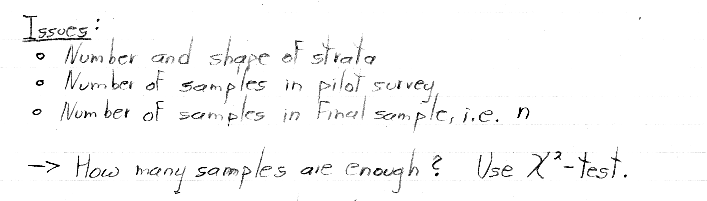 Issues:
○ Number and shape of strata
○ Number of samples in pilot survey
○ Number of samples in Final sample, i.e. n
-> How many samples are enough? Use χ²-test.